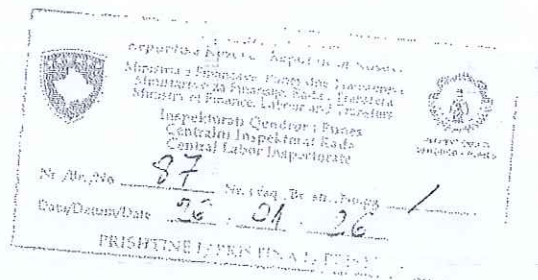 Republika Kosova - Republic of Kosovo
Ministria e Financave, Punës dhe Transfereve
Ministarstvo za Finansije, Rada i Transfera
Ministry of Finance, Labour and Transfers
Inspektorati Qendror i Punës
Centralni Inspektorat Rada
Central Labor Inspectorate
Nr./Br./No 87 Nr. i faq. Br. str. No.pg. /
Data/Datum/Date 26 . 01 . 26
PRISHTINË / PRIŠTINA /